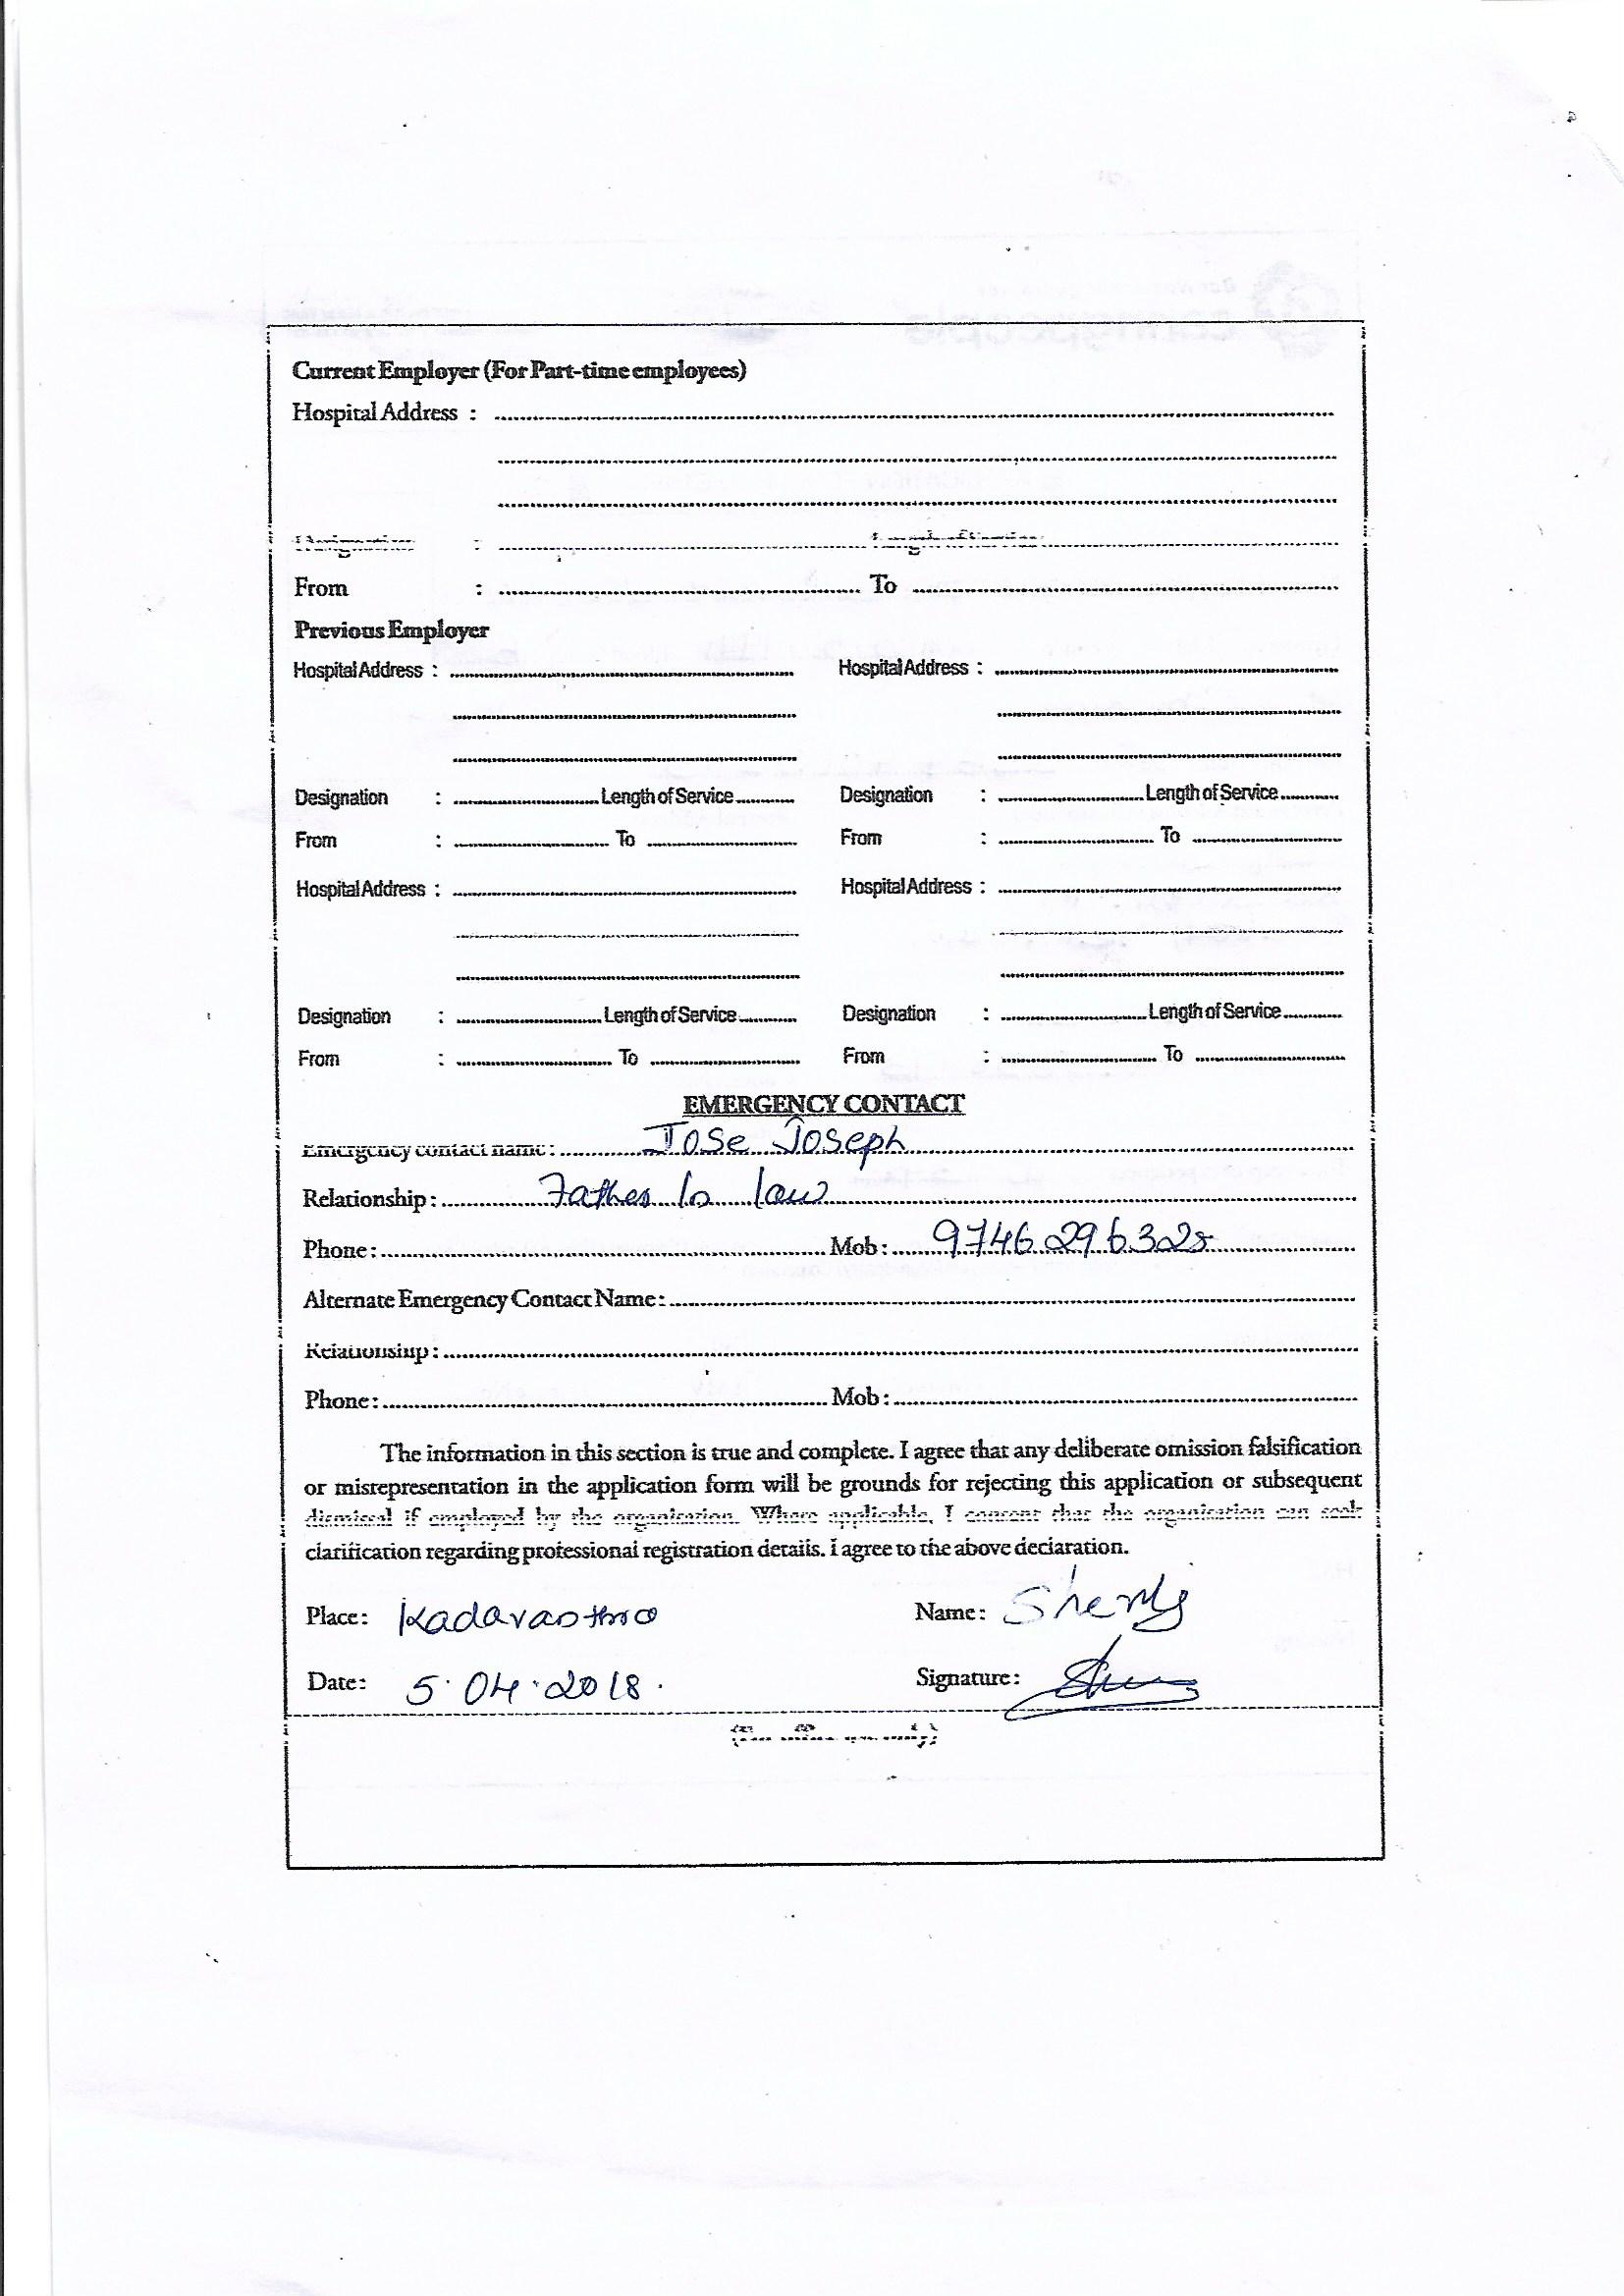 Current Employer (For Part-time employees)
Hospital Address :
Designation : Length of Service
From : To
Previous Employer
Hospital Address : Hospital Address :
Designation : Length of Service Designation : Length of Service
From : To From : To
Hospital Address : Hospital Address :
Designation : Length of Service Designation : Length of Service
From : To From : To
EMERGENCY CONTACT
Emergency contact name : Jose Joseph
Relationship : Father In law
Phone : Mob :
Alternate Emergency Contact Name :
Relationship :
Phone : Mob :
The information in this section is true and complete. I agree that any deliberate omission falsification
or misrepresentation in the application form will be grounds for rejecting this application or subsequent
dismissal if employed by the organisation. Where applicable, I consent that the organisation can seek
clarification regarding professional registration details. I agree to the above declaration.
Place : Name :
Date : 5.04.2018. Signature :
(For office use only)